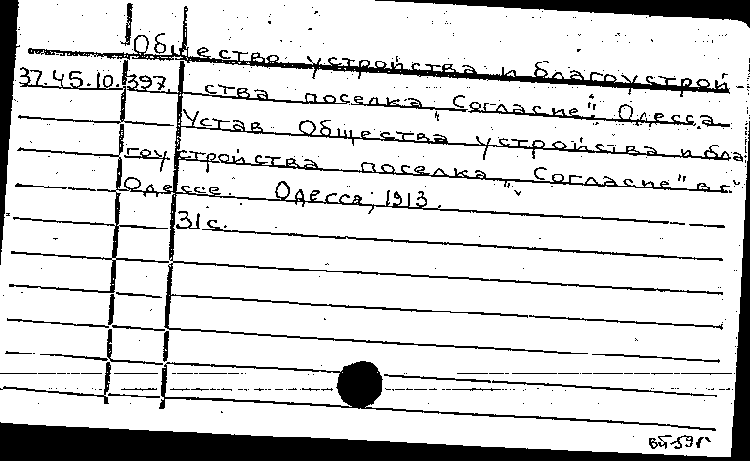 Общество устройства и благоустрой-
37.45.10.397. ства поселка „Согласие". Одесса.
Устав Общества устройства и бла
гоустройства поселка „Согласие" в г.
Одессе. Одесса, 1913.
31 с.